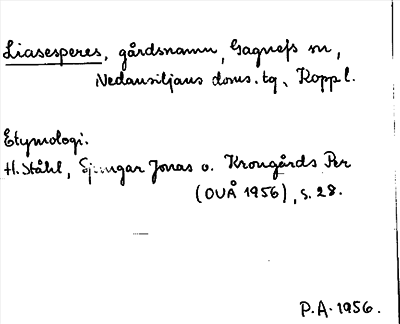 Liasesperes, gårdsnamn, Gagnefs sn,
Nedansiljans doms. tg, Koppl.
Etymologi.
H. Ståhl, Jonas o. Krongårds Per
(OUÅ 1956), s. 28.
P.A. 1956.